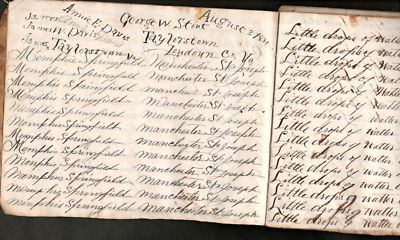 Annie E Davis George W. Stout August 3 1881
James W Davis Taylorstown
James Taylorstown Va Loudoun Co Va
Memphis Springfield Manchester St Joseph
Memphis Springfield Manchester St Joseph
Memphis Springfield Manchester St Joseph
Memphis Springfield Manchester St Joseph
Memphis Springfield Manchester St Joseph
Memphis Springfield Manchester St Joseph
Memphis Springfield Manchester St Joseph
Memphis Springfield Manchester St Joseph
Memphis Springfield Manchester St Joseph
Memphis Springfield Manchester St Joseph
Memphis Springfield Manchester St Joseph
Memphis Springfield Manchester St Joseph
Little drops of Water
Little drops of Water
Little drops of Water
Little drops of Water
Little drops of Water
Little drops of Water
Little drops of water
Little drops of water
Little drops of water
Little drops of water
Little drops of water
Little drops of water
Little drops of water